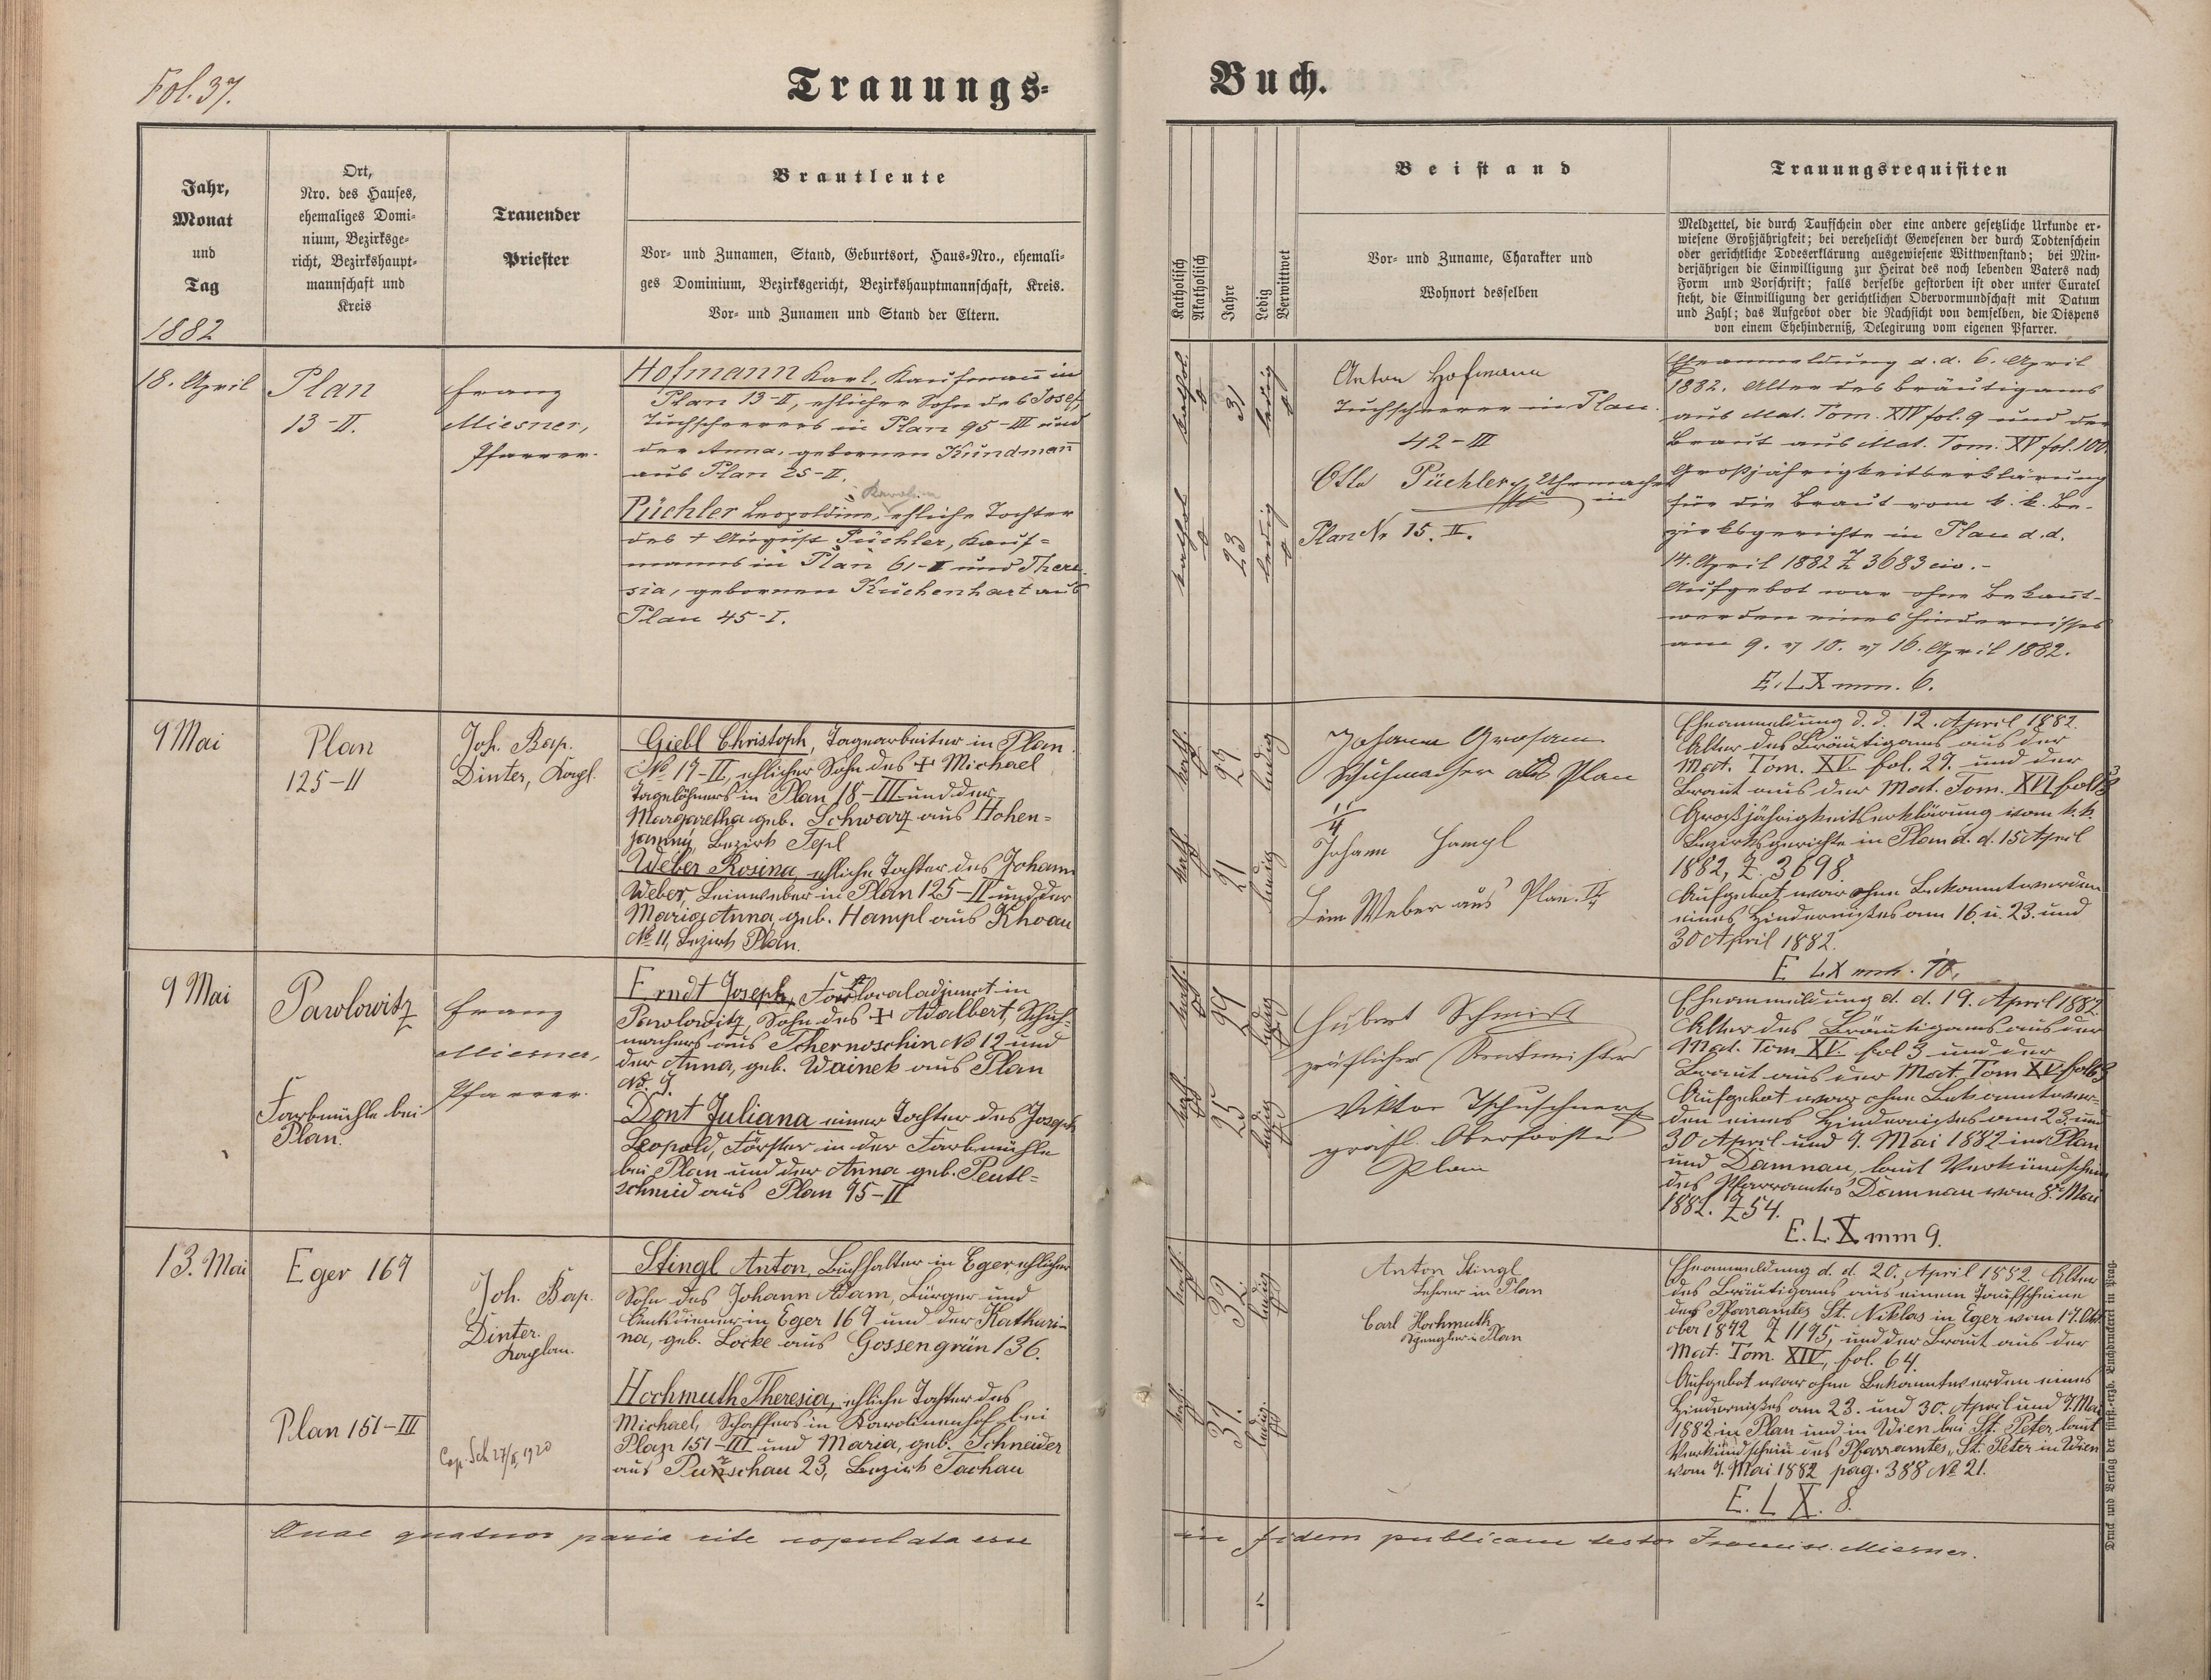 Fol. 37.
Trauungs=
Buch.
Jahr,
Monat
und
Tag
1882
Ort,
Nro. des Hauses,
ehemaliges Domi-
nium, Bezirksge-
richt, Bezirkshaupt-
mannschaft und
Kreis
Trauender
Priester
Brautleute
Vor- und Zunamen, Stand, Geburtsort, Haus-Nro., ehemali-
ges Dominium, Bezirksgericht, Bezirkshauptmannschaft, Kreis.
Vor- und Zunamen und Stand der Eltern.
Katholisch
Akatholisch
Jahre
Ledig
Verwittwet
Beistand
Vor- und Zuname, Charakter und
Wohnort desselben
Trauungsrequisiten
Meldzettel, die durch Taufschein oder eine andere gesetzliche Urkunde er-
wiesene Großjährigkeit; bei verehelicht Gewesenen der durch Todtenschein
oder gerichtliche Todeserklärung ausgewiesene Wittwenstand; bei Min-
derjährigen die Einwilligung zur Heirat des noch lebenden Vaters nach
Form und Vorschrift; falls derselbe gestorben ist oder unter Curatel
steht, die Einwilligung der gerichtlichen Obervormundschaft mit Datum
und Zahl; das Aufgebot oder die Nachsicht von demselben, die Dispens
von einem Ehehinderniß, Delegirung vom eigenen Pfarrer.
18. April
Plan
13-II.
Franz
Miesner,
Pfarrer.
Hofmann Karl, Kaufmañ in
Plan 13-II, ehlicher Sohn des Josef,
Tuchscherers in Plan 95-III und
der Anna, gebornen Kundmañ
aus Plan 25-II.
Karolin
Püchler Leopoldine, ehliche Tochter
des + August Püchler, Kauf=
manns in Plan 61-II und There
sia, gebornen Kuchenhart aus
Plan 45-I.
kathol.
31
ledig
kathol
23
ledig
Anton Hofmann
Tuchscherer in Plan.
42-III
Otto Püchler, Uhrmacher
in
Plan Nr 15. II.
Eheanmeldung d. d. 6. April
1882. Alter des Bräutigams
aus Mat. Tom. XIV fol. 9 und der
Braut aus Mat. Tom. XV fol. 100.
Großjährigkeitserklärung
für die Braut vom k. k. Be-
zirksgerichte in Plan d. d.
14. April 1882 Z 3683 civ.-
Aufgebot war ohne Bekañt-
werden eines Hindernisses
am 9. 10. 16. April 1882.
E. L X mm. 6.
9 Mai
Plan
125-II
Joh. Bap.
Dinter, Kapl.
Giebl Christoph, Tagearbeiter in Plan
No 17-II, ehlicher Sohn des + Michael
Tagelöhners in Plan 18-III und der
Margaretha geb. Schwarz aus Hohen=
jamny, Bezirk Tepl
Weber Rosina, ehliche Tochter des Johann
Weber, Leinweber in Plan 125-II und der
Maria Anna, geb. Hampl aus Khoau
No 11, Bezirk Plan.
kath.
27
ledig
kath.
21
ledig
Johann Grosam
Schuhmacher aus Plan
Johann Hampl
Lein Weber aus Plan. II
Eheanmeldung d. d. 12. April 1882.
Alter des Bräutigams aus der
Mat. Tom. XV. fol. 29. und der
Braut aus der Mat. Tom. XVI fol
Großjährigkeitserklärung vom k. k.
Bezirksgerichte in Plan d. d. 15 April
1882, Z. 3698.
Aufgebot war ohne Bekanntwerden
eines Hindernißes am 16. u. 23. und
30 April 1882.
E LX mm. 10.
9 Mai
Pawlowitz
Farbmühle bei
Plan.
Franz
Miesner,
Pfarrer.
Erndt Joseph, Forstlocaladjunct in
Pawlowitz, Sohn des + Adalbert, Schuh=
machers aus Tschernoschin No 12 und
der Anna, geb. Wainek aus Plan
No. 9
Dont Juliana einer Tochter des Joseph
Leopold, Förster in der Farbmühle
bei Plan und der Anna geb. Peutl=
schmid aus Plan 95-II
kath.
29
ledig
kath.
25
ledig
Hubert Schmidt
gräflicher Rentmeister
Viktor Tschuschner
gräfl. Oberförster
Plan
Eheanmeldung d. d. 19. April 1882.
Alter des Bräutigams aus der
Mat. Tom XV. fol 3 und der
Braut aus der Mat. Tom XV. fol
Aufgebot war ohne Bekanntwer-
den eines Hindernißes am 23. und
30 April und 7. Mai 1882 in Plan
und Damnau, laut Verkündschein
des Pfarramtes Damnau vom 8. Mai
1882. Z 54.
E. L X mm 9.
13. Mai
Eger 169
Plan 151-III
Joh. Bap.
Dinter.
Kaplan.
Cop. Sch 27/II, 1920
Stingl Anton, Buchhalter in Eger ehlicher
Sohn des Johann Adam, Bürger und
Amtsdiener in Eger 169 und der Kathari-
na, geb. Locke aus Gossengrün 136.
Hochmuth Theresia, ehliche Tochter des
Michael, Schaffers in Karolinenhof bei
Plan 151-III und Maria, geb. Schneider
aus Purschau 23, Bezirk Tachau
kath.
32.
ledig
kath.
31.
ledig.
Anton Stingl
Lehrer in Plan
Carl Hochmuth
Spengler in Plan
Eheanmeldung d. d. 20. April 1882. Alter
des Bräutigams aus einem Taufscheine
des Pfarramtes St. Niklas in Eger vom 17. Okt-
ober 1872 Z 1195, und der Braut aus der
Mat. Tom. XIV, fol. 64.
Aufgebot war ohne Bekanntwerden eines
Hindernißes am 23. und 30. April und 7. Mai
1882 in Plan und in Wien bei St. Peter, laut
Verkündschein des Pfarramtes "St. Peter in Wien
vom 7. Mai 1882 pag. 388 No 21.
E. L X. 8.
Quae quatuor paria rite copulata esse
in fidem publicam testor Francisc. Miesner.
Druck und Verlag der fürst.-erzb. Buchdruckerei in Prag.